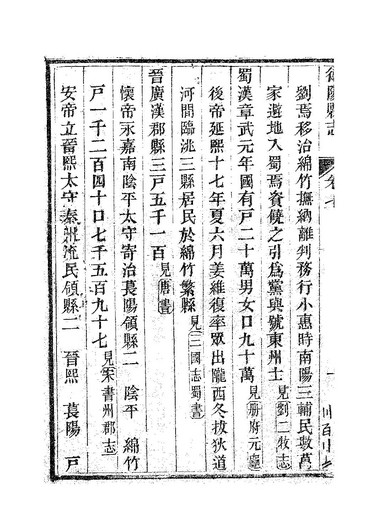 德陽縣志
劉焉移治綿竹撫納離判務行小惠時南陽三輔民數萬
家避地入蜀焉資饒之引爲黨與號東州士見劉二牧志
蜀漢章武元年國有戸二十萬男女口九十萬見册府元龜
後帝延熙十七年夏六月姜維復率眾出隴西冬拔狄道
河間臨洮三縣居民於綿竹繁縣見三國志蜀書
晉廣漢郡縣三戸五千一百見唐書
懷帝永嘉南陰平太守寄治萇陽領縣二 陰平 綿竹
戸一千二百四十口七千五百九十七見宋書州郡志
安帝立晉熙太守秦州流民領縣二 晉熙 萇陽 戸